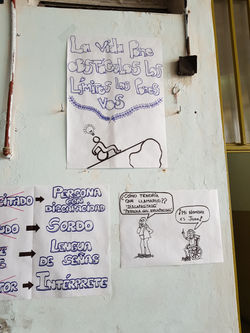 La vida pone
obstáculos los
Límites los pones
vos
CITADO → PERSONA
CON
DISCAPACIDAD
UDO → SORDO
E → LENGUA
DE SEÑAS
TOR → INTÉRPRETE
CÓMO TENDRÍA
QUE LLAMARTE??
"DISCAPACITADO"
¿MI NOMBRE
ES JUAN!